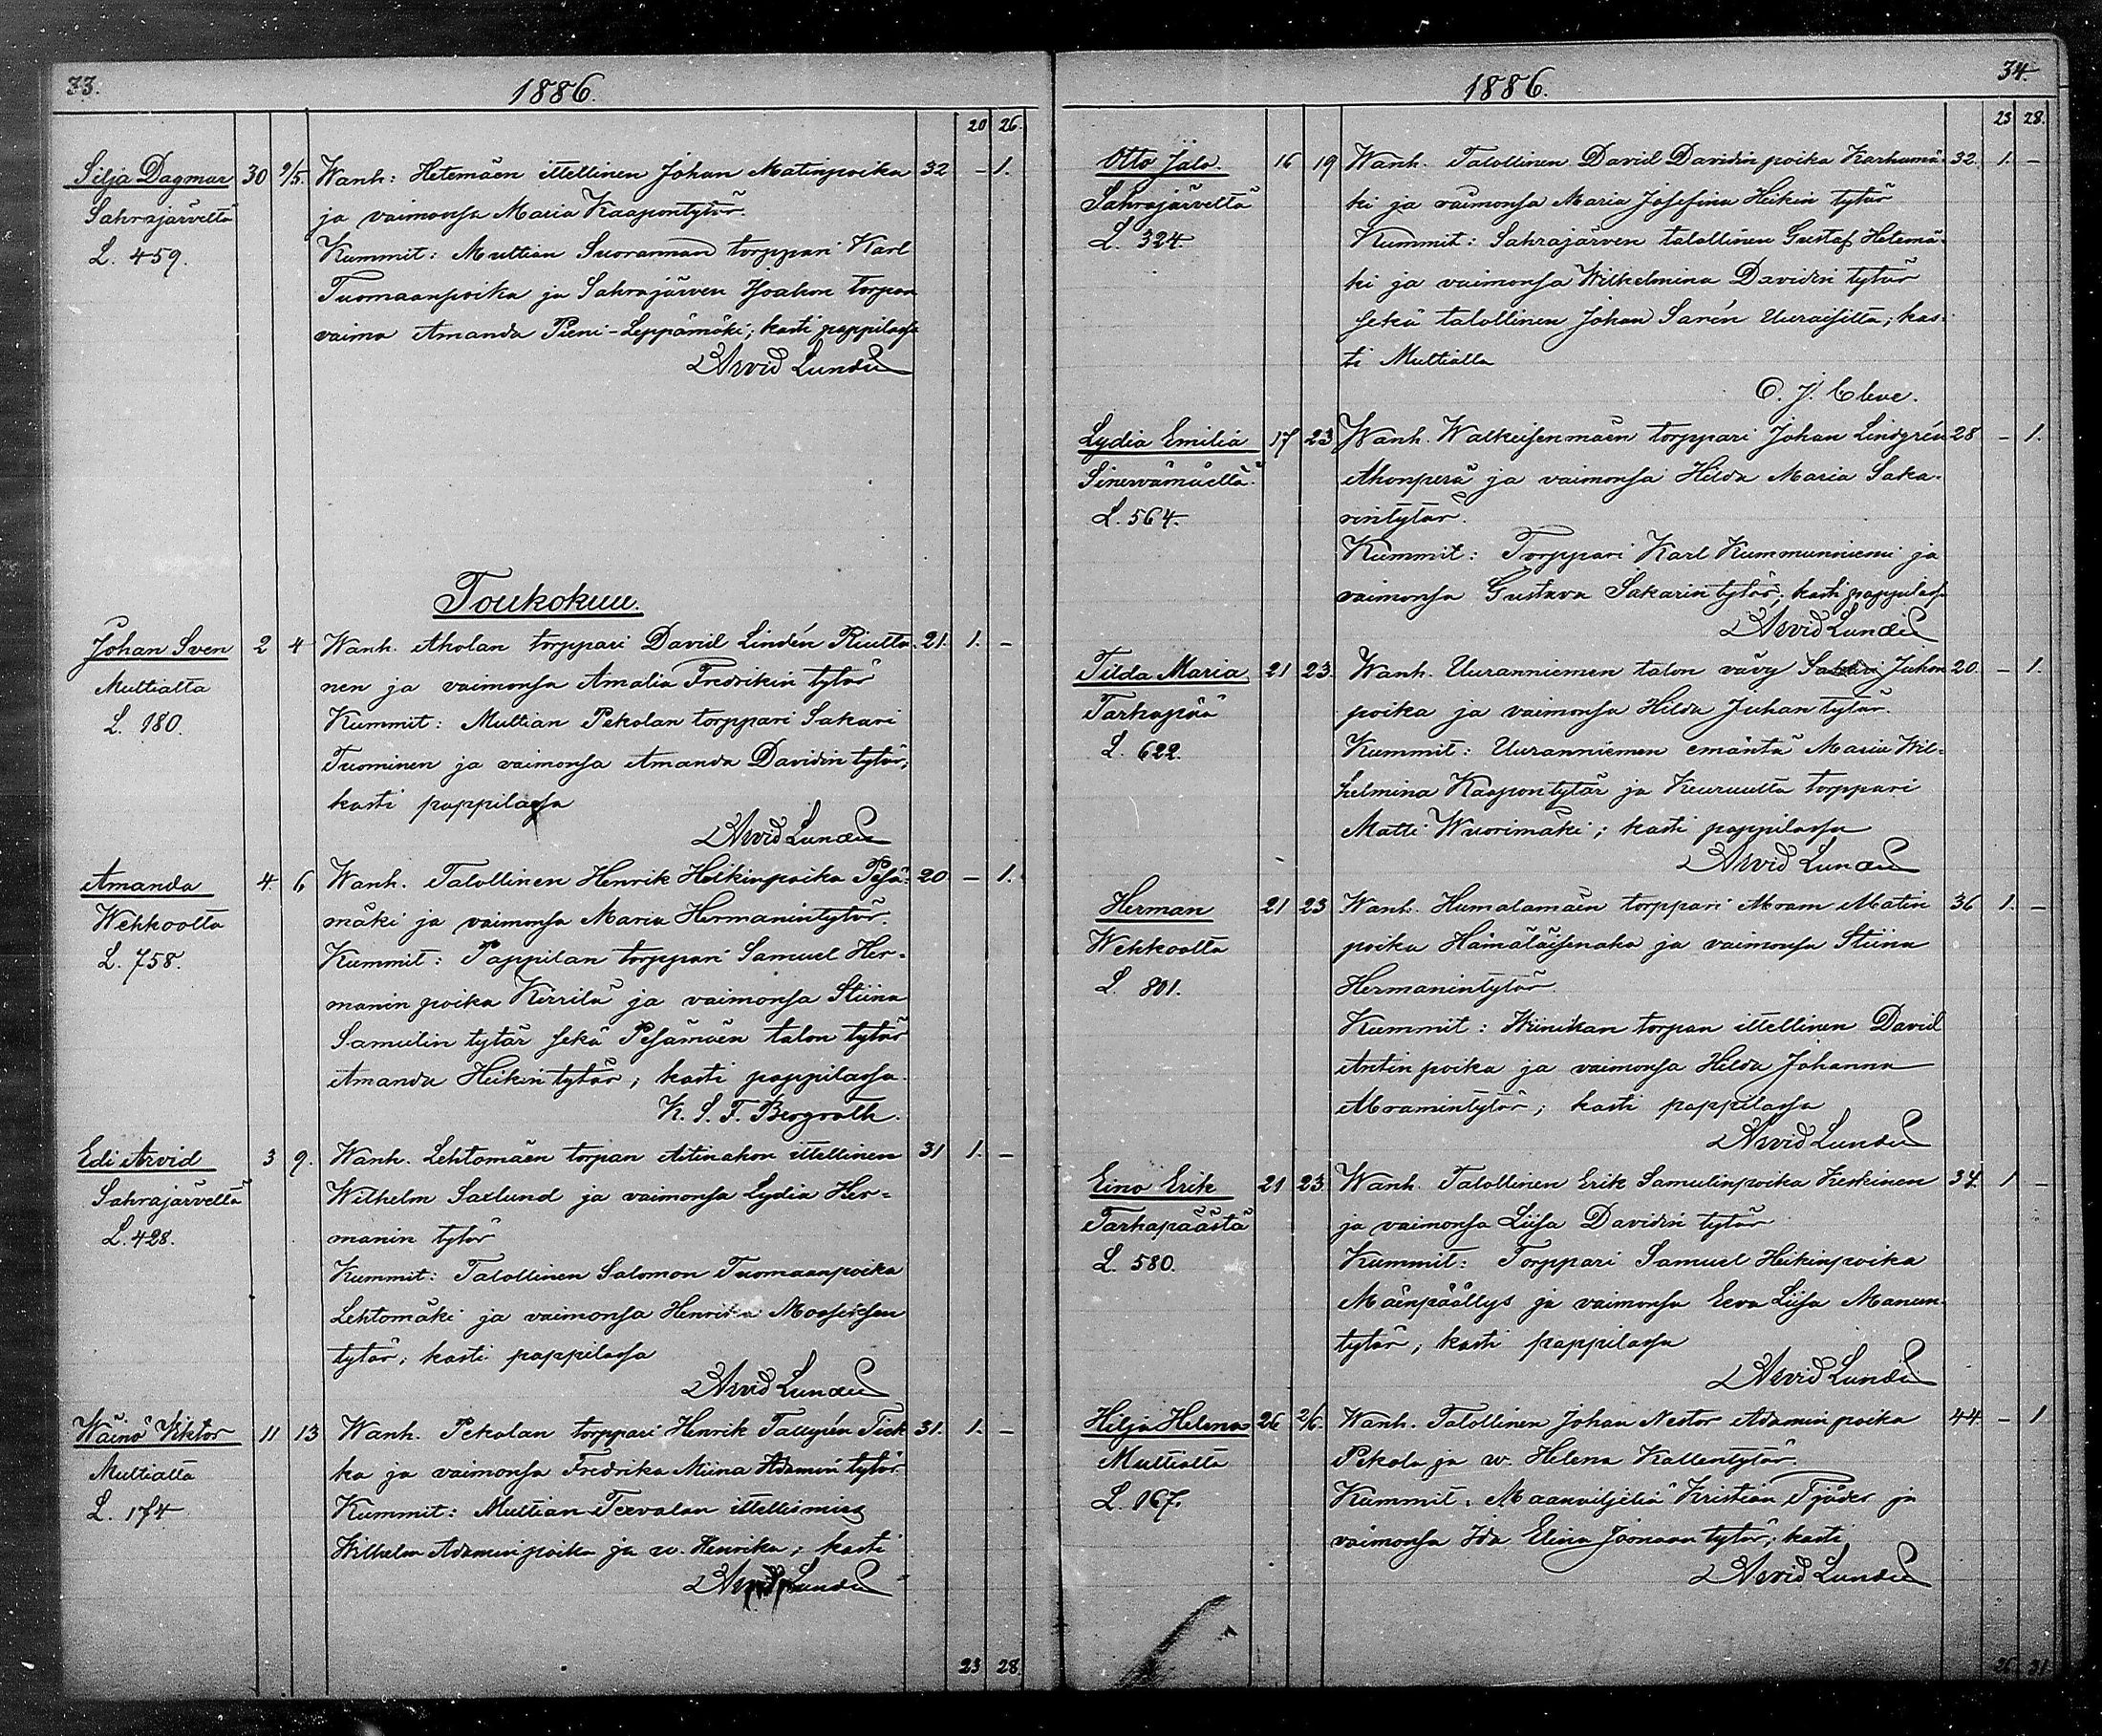 33.
1886.
20 26.
Silja Dagmar 30 9/5. Wanh: Hetemäen ittellinen Johan Matinpoika 32 - 1.
Sahrajärveltä ja vaimonsa Maria Kaapontytär.
L. 459. Kummit: Multian Suorannan torppari Karl
Tuomaanpoika ja Sahrajärven Isoahon torpan
vaimo Amanda Pieni-Leppämäki; kasti pappilassa
Arvid Lundén
Toukokuu.
Johan Sven 2 4 Wanh. Aholan torppari David Lindén Riutta- 21. 1. -
Multialta nen ja vaimonsa Amalia Fredrikin tytär
L. 180. Kummit: Multian Pekolan torppari Sakari
Tuominen ja vaimonsa Amanda Davidin tytär;
kasti pappilassa
Arvid Lundén
Amanda 4. 6 Wanh. Talollinen Henrik Heikinpoika Pesä- 20 - 1.
Wehkoolta mäki ja vaimonsa Maria Hermanintytär.
L. 758. Kummit: Pappilan torppari Samuel Her-
manin poika Kirrilä ja vaimonsa Stiina
Samulin tytär sekä Pesämäen talon tytär
Amanda Heikin tytär; kasti pappilassa.
K. S. F. Bergroth.
Edi Arvid 3 9. Wanh. Lehtomäen torpan Aitinahon ittellinen 31 1. -
Sahrajärveltä Wilhelm Saxlund ja vaimonsa Lydia Her-
L. 428. manin tytär
Kummit: Talollinen Salomon Tuomaanpoika
Lehtomäki ja vaimonsa Henrika Mooseksen
tytär; kasti pappilassa
Arvid Lundén
Wäinö Viktor 11 13 Wanh. Pekolan torppari Henrik Tallgrén Tiek- 31. 1. -
Multialta ka ja vaimonsa Fredrika Miina Adamin tytär.
L. 174 Kummit: Multian Tervalan ittellismies
Wilhelm Adaminpoika ja w. Henrika; kasti
Arvid Lundén
23 28.
34.
1886.
23 28.
Otto Jalo 16 19 Wanh. Talollinen David Davidinpoika Karhumä- 32. 1. -
Sahrajärveltä ki ja vaimonsa Maria Josefina Heikin tytär
L. 324. Kummit: Sahrajärven talollinen Gustaf Hetemä-
ki ja vaimonsa Wilhelmina Davidin tytär
sekä talollinen Johan Sarén Uuraisilta; kas-
ti Multialla
O. J. Cleve.
Lydia Emilia 17 23 Wanh. Walkeisenmäen torppari Johan Lindgrén 28 - 1.
Sinervämäeltä Ahonperä ja vaimonsa Hilda Maria Saka-
L. 564. rintytär.
Kummit: Torppari Karl Kummunniemi ja
vaimonsa Gustava Sakarin tytär; kasti pappilassa
Arvid Lundén
Tilda Maria 21 23. Wanh. Uuranniemen talon vävy Juhon 20. - 1.
Tarhapää poika ja vaimonsa Hilda Juhan tytär.
L. 622. Kummit: Uuranniemen emäntä Maria Wil-
helmina Kaapontytär ja Keuruulta torppari
Matti Wuorimäki; kasti pappilassa
Arvid Lundén
Herman 21 23 Wanh. Humalamäen torppari Abram Matin 36 1. -
Wehkoolta poika Hämäläisenaho ja vaimonsa Stiina
L. 801. Hermanintytär
Kummit: Wiinikan torpan ittellinen David
Antin poika ja vaimonsa Hilda Johanna
Abramintytär; kasti pappilassa
Arvid Lundén
Eino Erik 21 23 Wanh. Talollinen Erik Samulinpoika Keskinen 34. 1 -
Tarhapäästä ja vaimonsa Liisa Davidin tytär
L. 580. Kummit: Torppari Samuel Heikinpoika
Mäenpäällys ja vaimonsa Eeva Liisa Manun-
tytär; kasti pappilassa
Arvid Lundén
Hilja Helena 26 2/6. Wanh. Talollinen Johan Nestor Adamin poika 44. - 1
Multialta Pekola ja w. Helena Kallentytär.
L. 167. Kummit: Maanviljeliä Kristian Tjäder ja
vaimonsa Ida Elina Joonaan tytär; kasti
Arvid Lundén
26 31